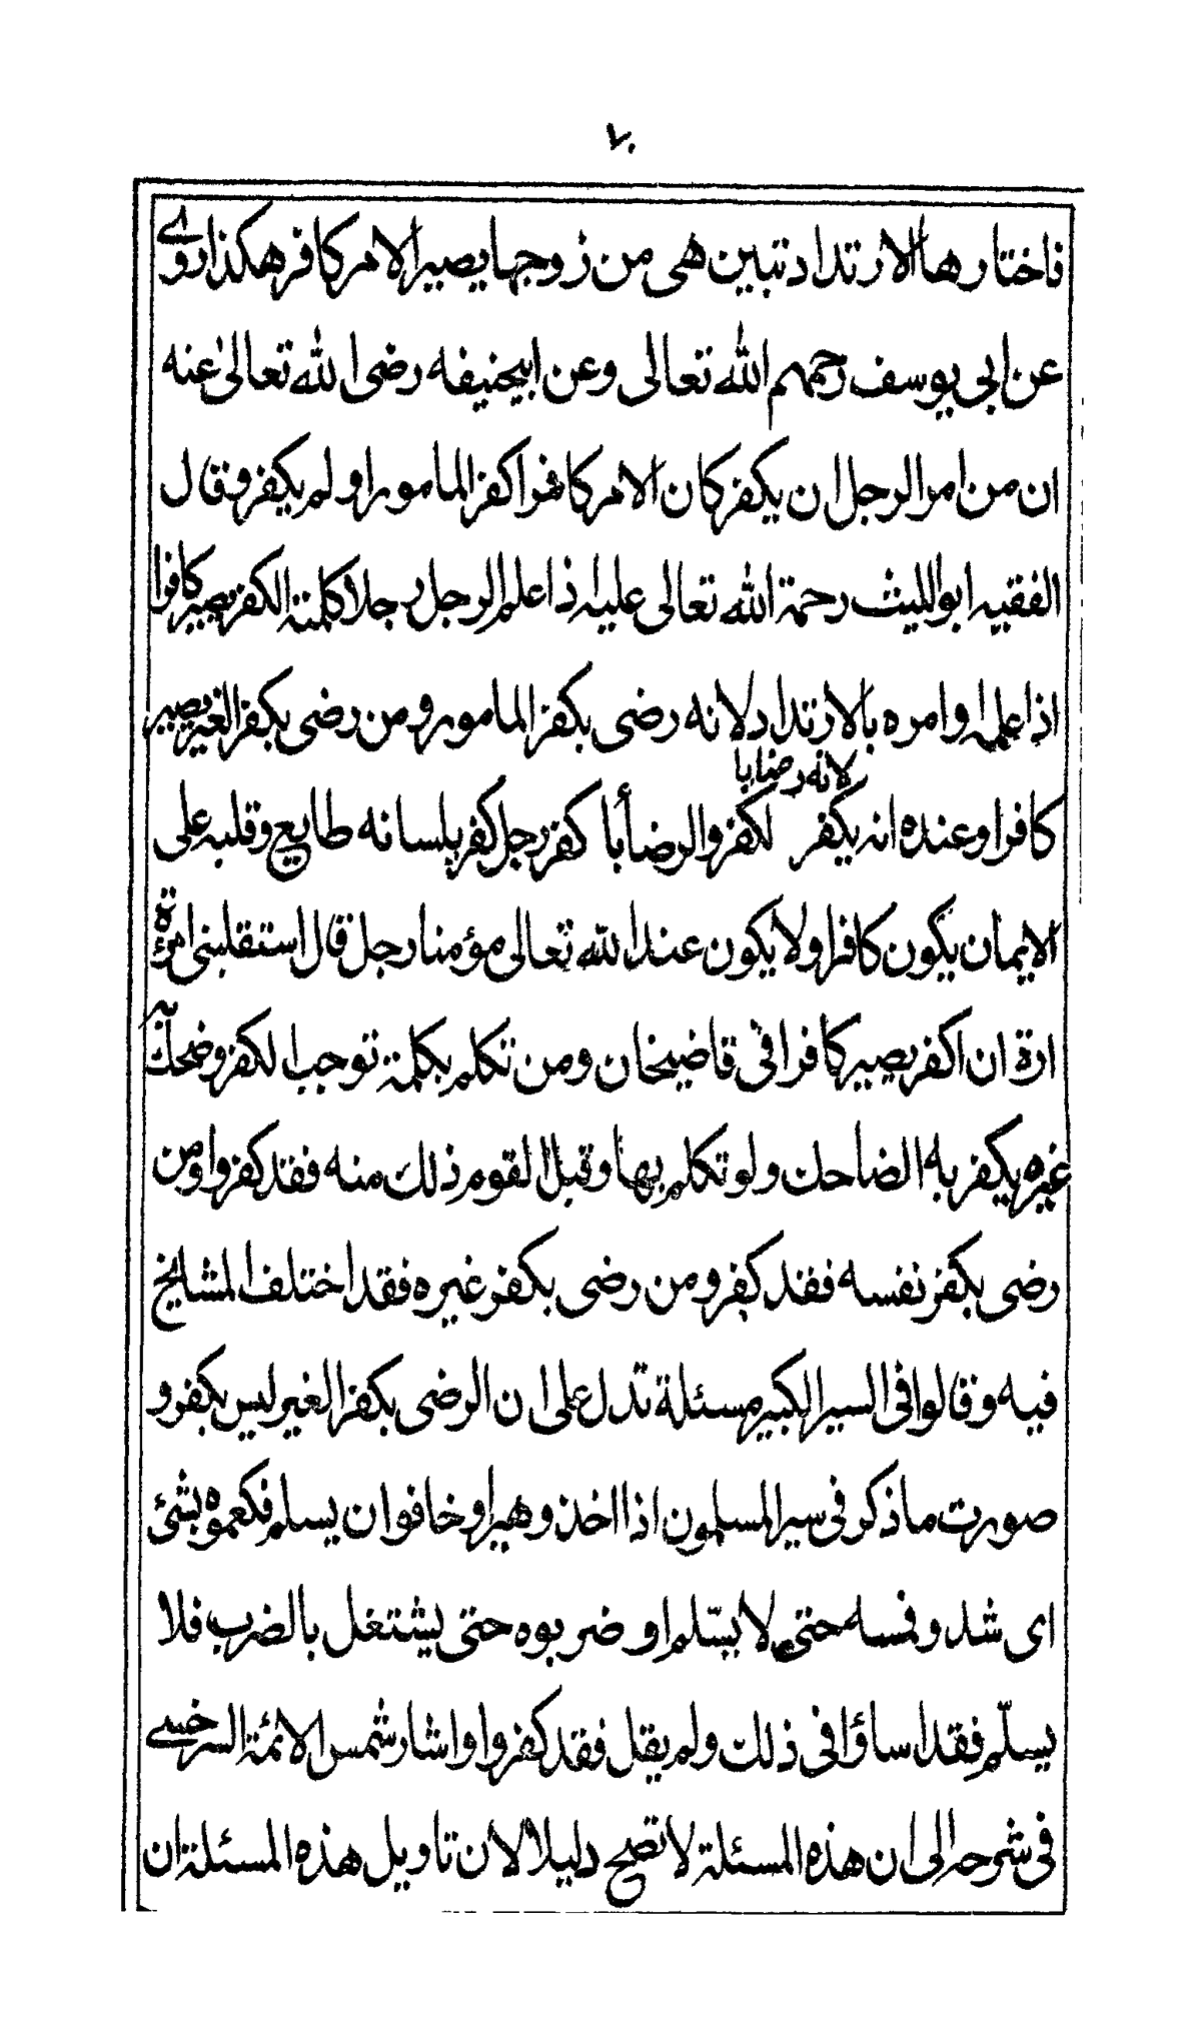 ٧٠
فاختارها الارتداد تتبين هى من زوجها يصير الامر كافر هكذا روے
عن ابى يوسف رحمهم الله تعالى وعن ابيحنيفه رضى الله تعالىٰ عنه
ان من امر الرجل ان يكفر كان الامر كافرا كفر المامور او لم يكفر وقال
الفقيه ابو الليث رحمة الله تعالى عليه اذا علم الرجل رجلا كلمة الكفر يصير كافرا
اذا علمه او امره بالارتداد لانه رضى بكفر المامور ومن رضى بكفر الغير يصير
لانه رضا با
كافرا وعنده انه يكفر لكفر والرضأ با كفر رجل كفر بلسانه طايع وقلبه على
الايمان يكون كافرا ولا يكون عند الله تعالى مؤمنا رجل قال استقلبنى امرؤة
ارة ان اكفر يصير كافرا فى قاضيخان ومن تكلم بكلمة توجب الكفر وضحك به
غيره يكفر به الضاحك ولو تكلم بها وقبل القوم ذلك منه فقد كفروا ومن
رضى بكفر نفسه فقد كفر ومن رضى بكفر غيره فقد اختلف المشايخ
فيه وقالوا فى السير الكبير مسئلة تدل على ان الرضى بكفر الغير ليس بكفر و
صورت ما ذكر فى سير المسلمون اذا اخذ وهيرا وخافوا ان يسلم فكعموه بشئ
اى شد وفمسه حتى لا يسّلم او ضربوه حتى يشتغل بالضرب فلا
يسلّم فقد اساؤا فى ذلك ولم يقل فقد كفروا واشار شمس الائمة السرخسے
فى شرحه الى ان هذه المسئلة لا تصح دليلا لان تاويل هذه المسئلة ان